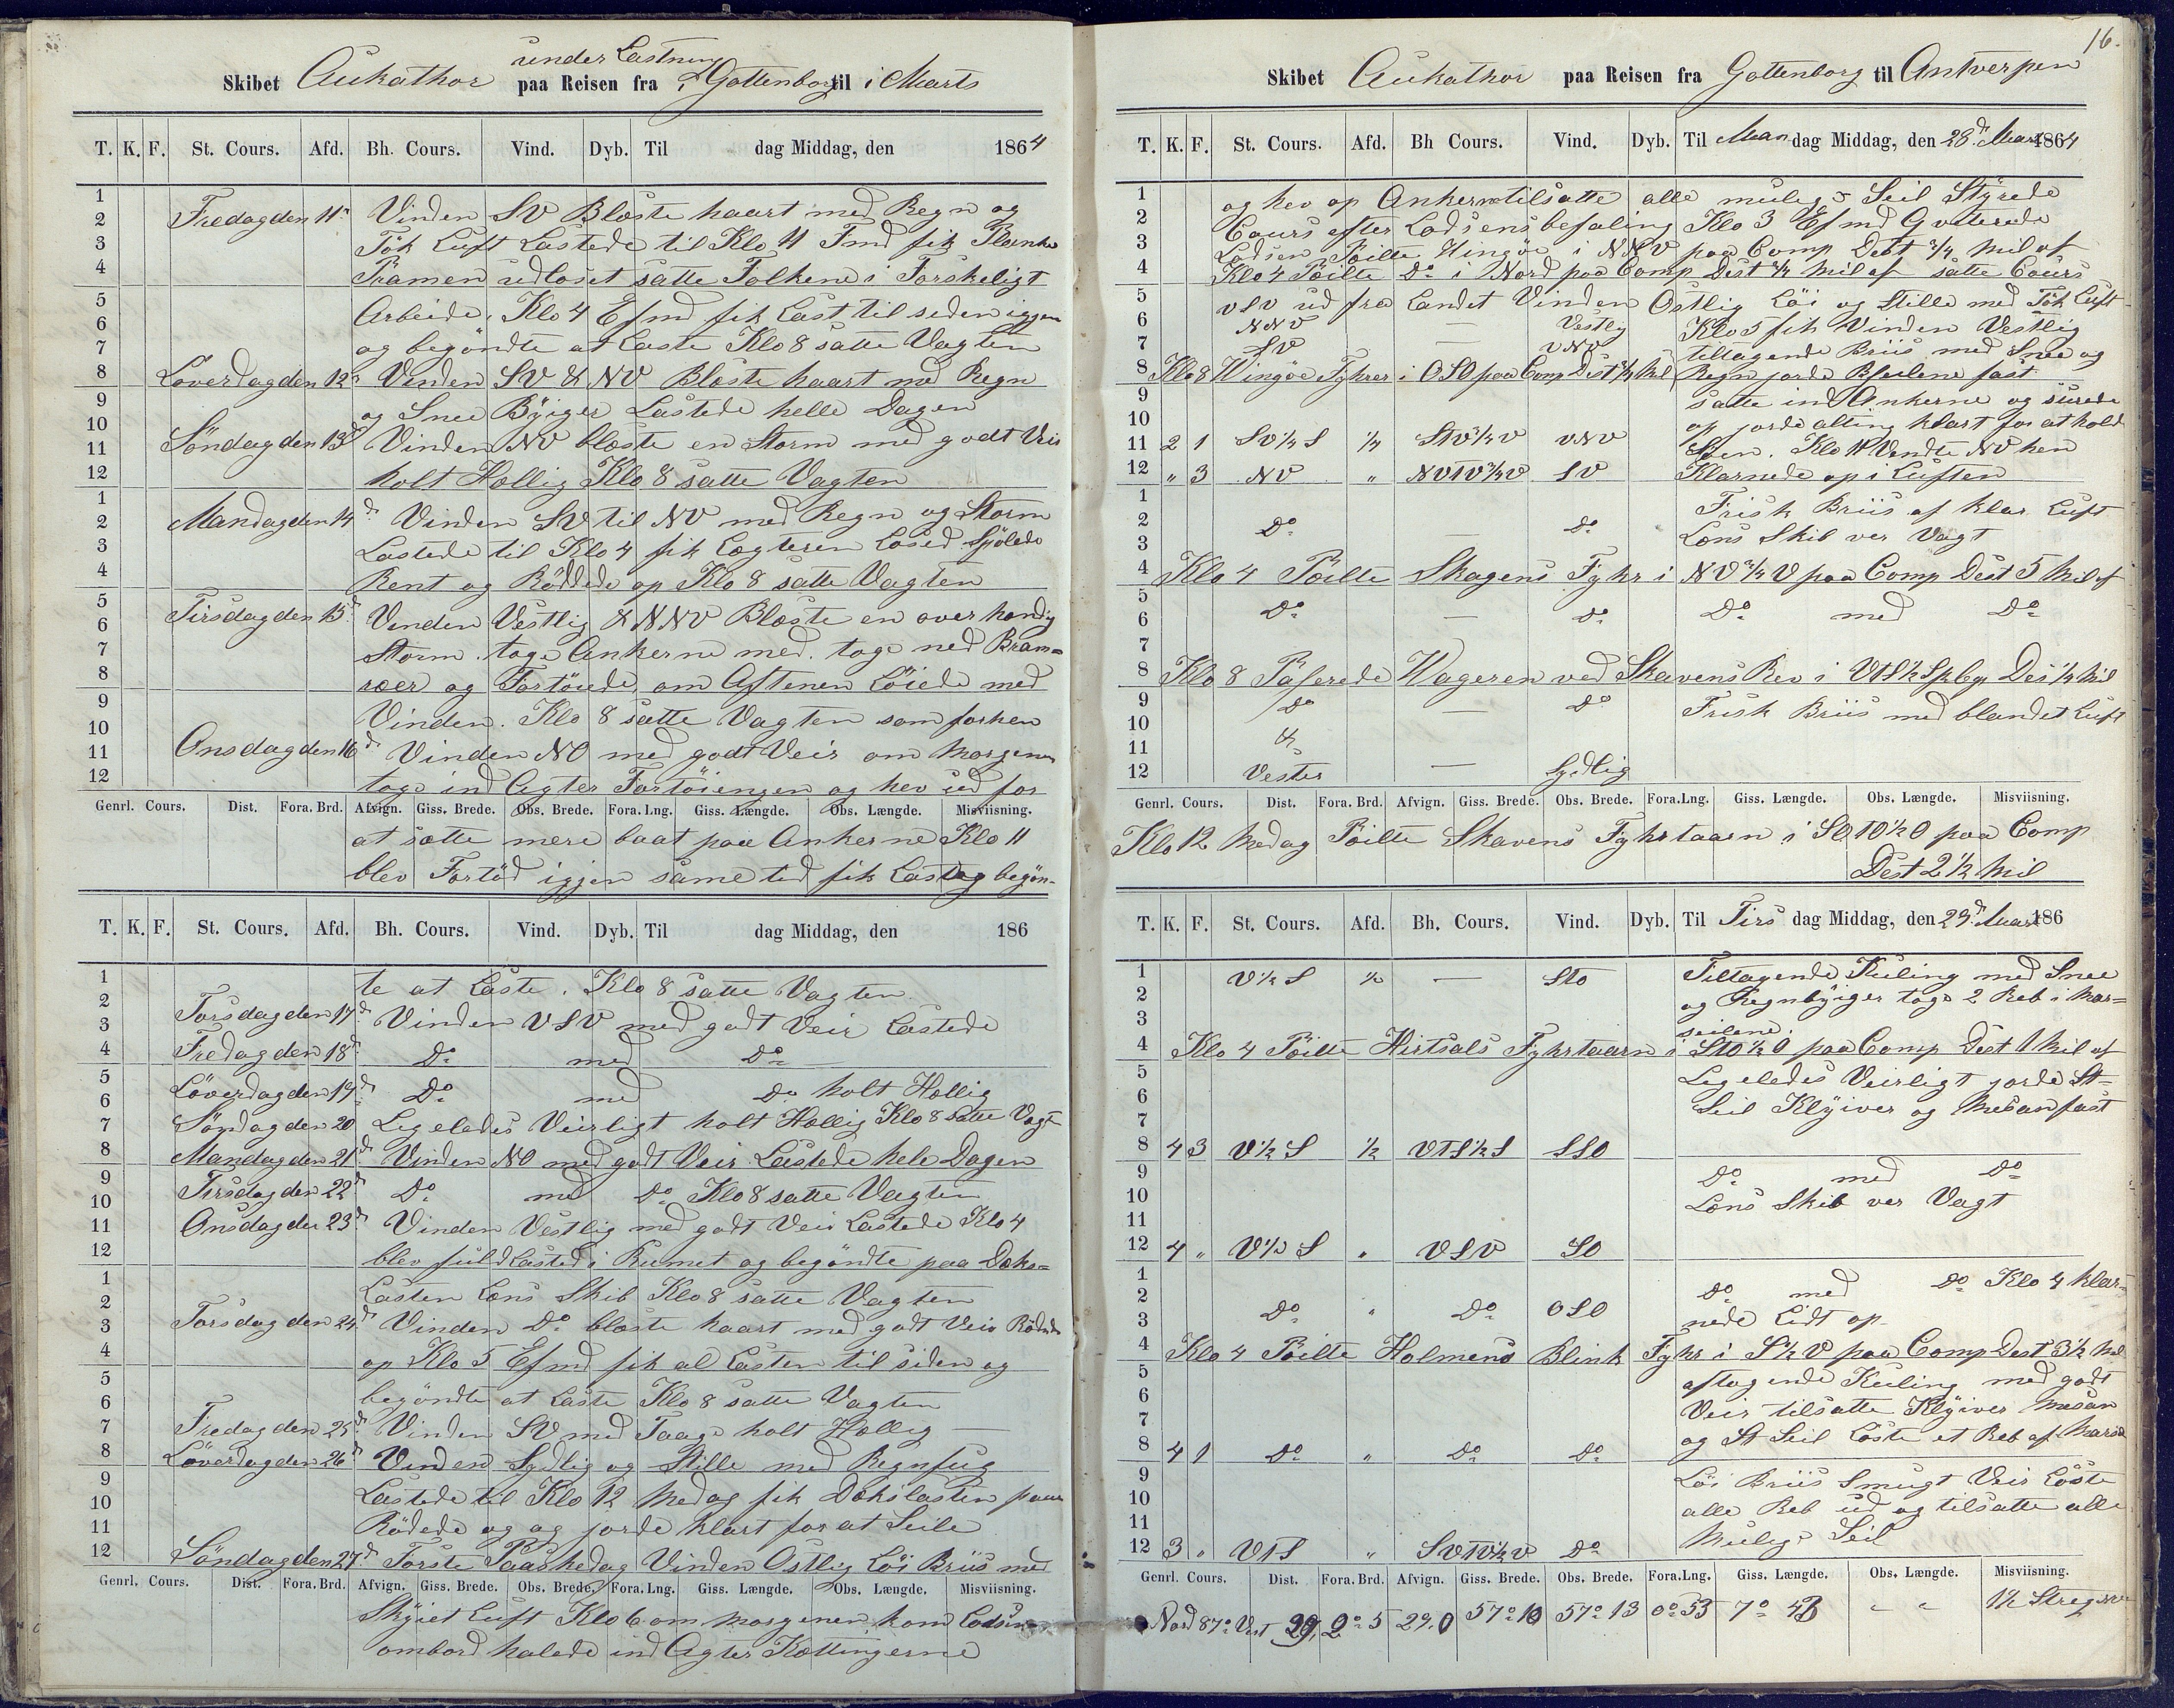 under Lastning
Skibet Aukathor paa Reisen fra i Gottenborg til i Marts
T. K. F. St. Cours. Afd. Bh. Cours. Vind. Dyb. Til dag Middag, den 1864
1
2 Fredag den 11te Vinden SV Blæste haart med Regn og
3 Tök Luft Lastede til Klo 11 Fmd fik Planke
4 Pramen udloset satte Folkene i Forskeligt
5 Arbeide, Klo 4 Efmd fik Last til siden igjen
6
7 og begöndte at Laste Klo 8 satte Vagten
8 Löverdag den 12te Vinden SV & NV Blæste haart med Regn
9
10 og Snee Byiger Lastede helle Dagen
11 Söndag den 13d Vinden NV blæste en Storm med godt Veir
12 holt Hellig Klo 8 satte Vagten
1
2 Mandag den 14d Vinden SV til NV med Regn og Storm
3 Lastede til Klo 4 fik Lægteren Losed Spölede
4 Rent og Röddede op Klo 8 satte Vagten
5
6 Tirsdag den 15d Vinden Vestlig & NNV Blæste en over handig
7 Storm. toge Ankerne med. toge ned Bram=
8 roer og Fortöiede, om Aftenen Löiede med
9 Vinden. Klo 8 satte Vagten som forhen
10
11 Onsdag den 16d Vinden NO med godt Veir om Morgenen
12 toge ind Agter Fortöiengen og hev ud for
Genrl. Cours. Dist. Fora. Brd. Afvign. Giss. Brede. Obs. Brede. Fora. Lng. Giss. Længde. Obs. Længde. Misviisning.
at sætte mere baat paa Ankerne Klo 11
blev Fortöd igjen same ted fik Last og begön-
T. K. F. St. Cours. Afd. Bh. Cours. Vind. Dyb. Til dag Middag, den 186
1 te at Laste. Klo 8 satte Vagten
2
3 Torsdag den 17d Vinden VSV med godt Veir Lastede
4 Fredag den 18d Do med Do
5
6 Löverdag den 19d Do med Do holt Hellig
7 Söndag den 20 Legeledes Veirligt holt Hellig Klo 8 satte Vagt
8 Mandag den 21d Vinden NO med godt Veir Lastede hele Dagen
9
10 Tirsdag den 22d Do med Do Klo 8 satte Vagten
11 Onsdag den 23d Vinden Vestlig med godt Veir Lastede Klo 4
12 blev fuld Lasted i Rumet og begöndte paa Deks=
1
2 Lasten Lens Skib Klo 8 satte Vagten
3 Torsdag den 24d Vinden Do blæste haart med godt Veir Rödede
4 op Klo 5 Efmd fik al Lasten til siden og
5
6 begöndte at Laste Klo 8 satte Vagten
7 Fredag den 25d Vinden SV med Taage holt Hellig
8 Löverdag den 26d Vinden Sydlig og Stille med Regnfug
9
10 Lastede til Klo 12 Medag fik Dekslasten paa
11 Rödede og og jorde klart for at Seile
12 Söndag den 27d Forste Paaskedag Vinden Ostlig Löi Briis med
Genrl. Cours. Dist. Fora. Brd. Afvign. Giss. Brede. Obs. Brede. Fora. Lng. Giss. Længde. Obs. Længde. Misviisning.
Skyiet Luft Klo 6 om Morgenen kom Lodsen
ombord halede ind Agter Kættingerne
16.
Skibet Aukathor paa Reisen fra Gottenborg til Antverpen
T. K. F. St. Cours. Afd. Bh Cours. Vind. Dyb. Til Man dag Middag, den 28d Mars 1864
1 og hev op Ankerne tilsatte alle mulege Seil Styrede
2 Cours efter Lodsens befaling Klo 3 Efmd Qvoterede
3 Lodsen Peilte Wingöe i NNV paa Comp Dest 3/4 Mil af
4 Klo 4 Peilte Do i Nord paa Comp Dest 3/4 Mil af satte Cours
5 VSV ud fra Landet Vinden Ostlig Löi og Stille med Tök Luft
6 NNV — Vestlig Klo 5 fik Vinden Vestlig
7 SV — VNV tiltagende Briis med Snee og
8 Klo 8 Wingöe Fyhrer i OSO paa Comp Dist 3/4 Mil Regn jorde Bseilene fast
9 satte ind Ankerne og surede
10 op jorde alting klart for at holde
11 2 1 SV 1/2 S 1/4 StV 3/4 V VNV Söen. Klo 11 Vendte NV hen
12 " 3 NV " NVTV 3/4 V SV Klarnede op i Luften
1 Frisk Briis af klar Luft
2 Do — Do
3 Lens Skib ver Vagt
4 Klo 4 Peilte Skagens Fyhr i NV 3/4 V paa Comp Dest 5 Mil af
5
6 Do — Do Do med Do
7
8 Klo 8 Paserede Wageren ved Skavens Rev i VtS 1/2 S pbgr Des 1/2 Mil
9 Do — Do Frisk Briis med blandet Luft
10
11 &
12 Vester — Sydlig
Genrl. Cours. Dist. Fora. Brd. Afvign. Giss. Brede. Obs. Brede. Fora.Lng. Giss. Længde. Obs. Længde. Misviisning.
Klo 12 Medag Peilte Skavens Fyhrtaarn i SOTO 1/2 O paa Comp
Dest 2 1/2 Mil
T. K. F. St. Cours. Afd. Bh. Cours. Vind. Dyb. Til Tirs dag Middag, den 29d Mars 186
1 V 1/2 S 1/2 — StO Tiltagende Kuling med Snee
2 og Regnbyiger toge 2 Reb i Mær=
3 seilene.
4 Klo 4 Peilte Hirtsals Fyhrtaarn i StO 1/2 O paa Comp Dest 1 Mil af
5 Legeledes Veirligt jorde St=
6 Seil Klyiver og Mesan fast
7
8 4 3 V 1/2 S 1/2 VTS 1/2 S SSO
9 Do med Do
10 Lens Skib ver Vagt
11
12 4 " V 1/2 S " VSV SO
1 Do med Do Klo 4 klar=
2 Do " Do OSO nede Lidt op
3
4 Klo 4 Peilte Holmens Blink Fyhr i S 1/2 V paa Comp Dest 3 1/2 Mil
5 aftagende Kuling med godt
6 Veir tilsatte Klyiver Mesan
7 og St Seil Löste et Reb af Mærse
8 4 1 Do " Do Do
9 Löi Briis Smugt Veir Löste
10 alle Reb ud og tilsatte alle
11 Mulege Seil
12 3 " VTS " SVTV 1/2 V Do
Genrl. Cours. Dist. Fora. Brd. Afvign. Giss. Brede. Obs. Brede. Fora.Lng. Giss. Længde. Obs. Længde. Misviisning.
Nord 87° Vest 29, 2° 5 29,0 57° 10 57° 13 0° 53 7° 43 " " 1 1/2 Streg